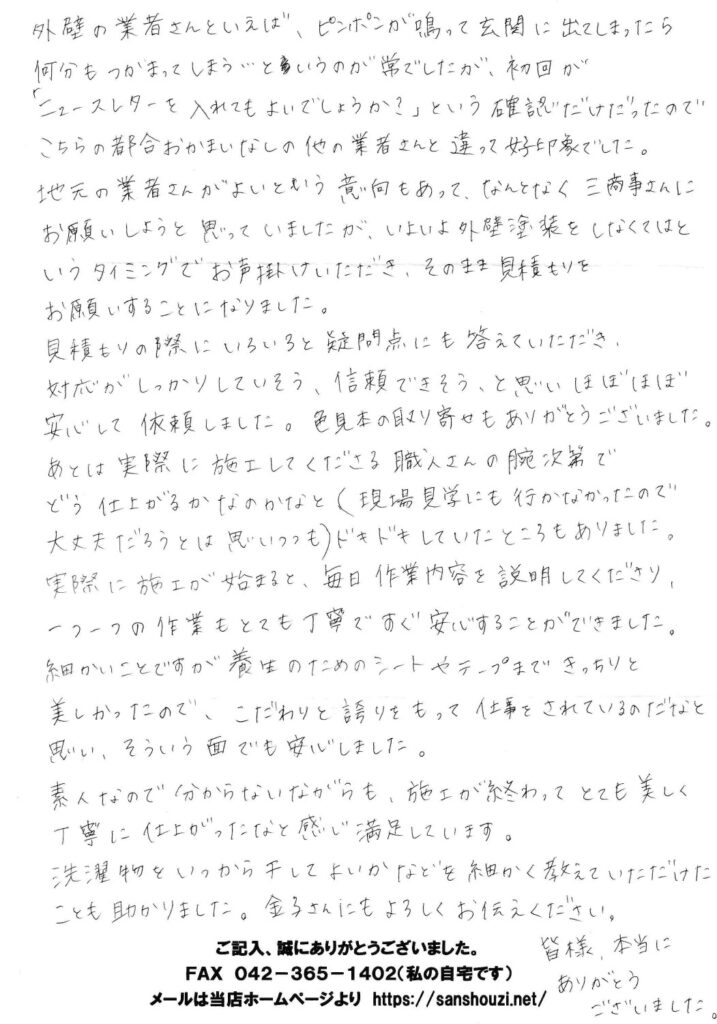 外壁の業者さんといえば、ピンポンが鳴って玄関に出てしまったら
何分もつかまってしまう…というのが常でしたが、初回が
「ニュースレターを入れてもよいでしょうか?」という確認だけだったので
こちらの都合おかまいなしの他の業者さんと違って好印象でした。
地元の業者さんがよいという意向もあって、なんとなく三商事さんに
お願いしようと思っていましたが、いよいよ外壁塗装をしなくてはと
いうタイミングでお声掛けいただき、そのまま見積もりを
お願いすることになりました。
見積もりの際にいろいろと疑問点にも答えていただき、
対応がしっかりしていそう、信頼できそう、と思いほぼほぼ
安心して依頼しました。色見本の取り寄せもありがとうございました。
あとは実際に施工してくださる職人さんの腕次第で
どう仕上がるかなのかなと(現場見学にも行かなかったので
大丈夫だろうとは思いつつも)ドキドキしていたところもありました。
実際に施工が始まると、毎日作業内容を説明してくださり、
一つ一つの作業もとても丁寧ですぐ安心することができました。
細かいことですが養生のためのシートやテープまできっちりと
美しかったので、こだわりと誇りをもって仕事をされているのだなと
思い、そういう面でも安心しました。
素人なので分からないながらも、施工が終わってとても美しく
丁寧に仕上がったなと感じ満足しています。
洗濯物をいつから干してよいかなどを細かく教えていただけた
ことも助かりました。金子さんにもよろしくお伝えください。
皆様、本当に
ありがとう
ございました。
ご記入、誠にありがとうございました。
FAX 042-365-1402(私の自宅です)
メールは当店ホームページより https://sanshouzi.net/